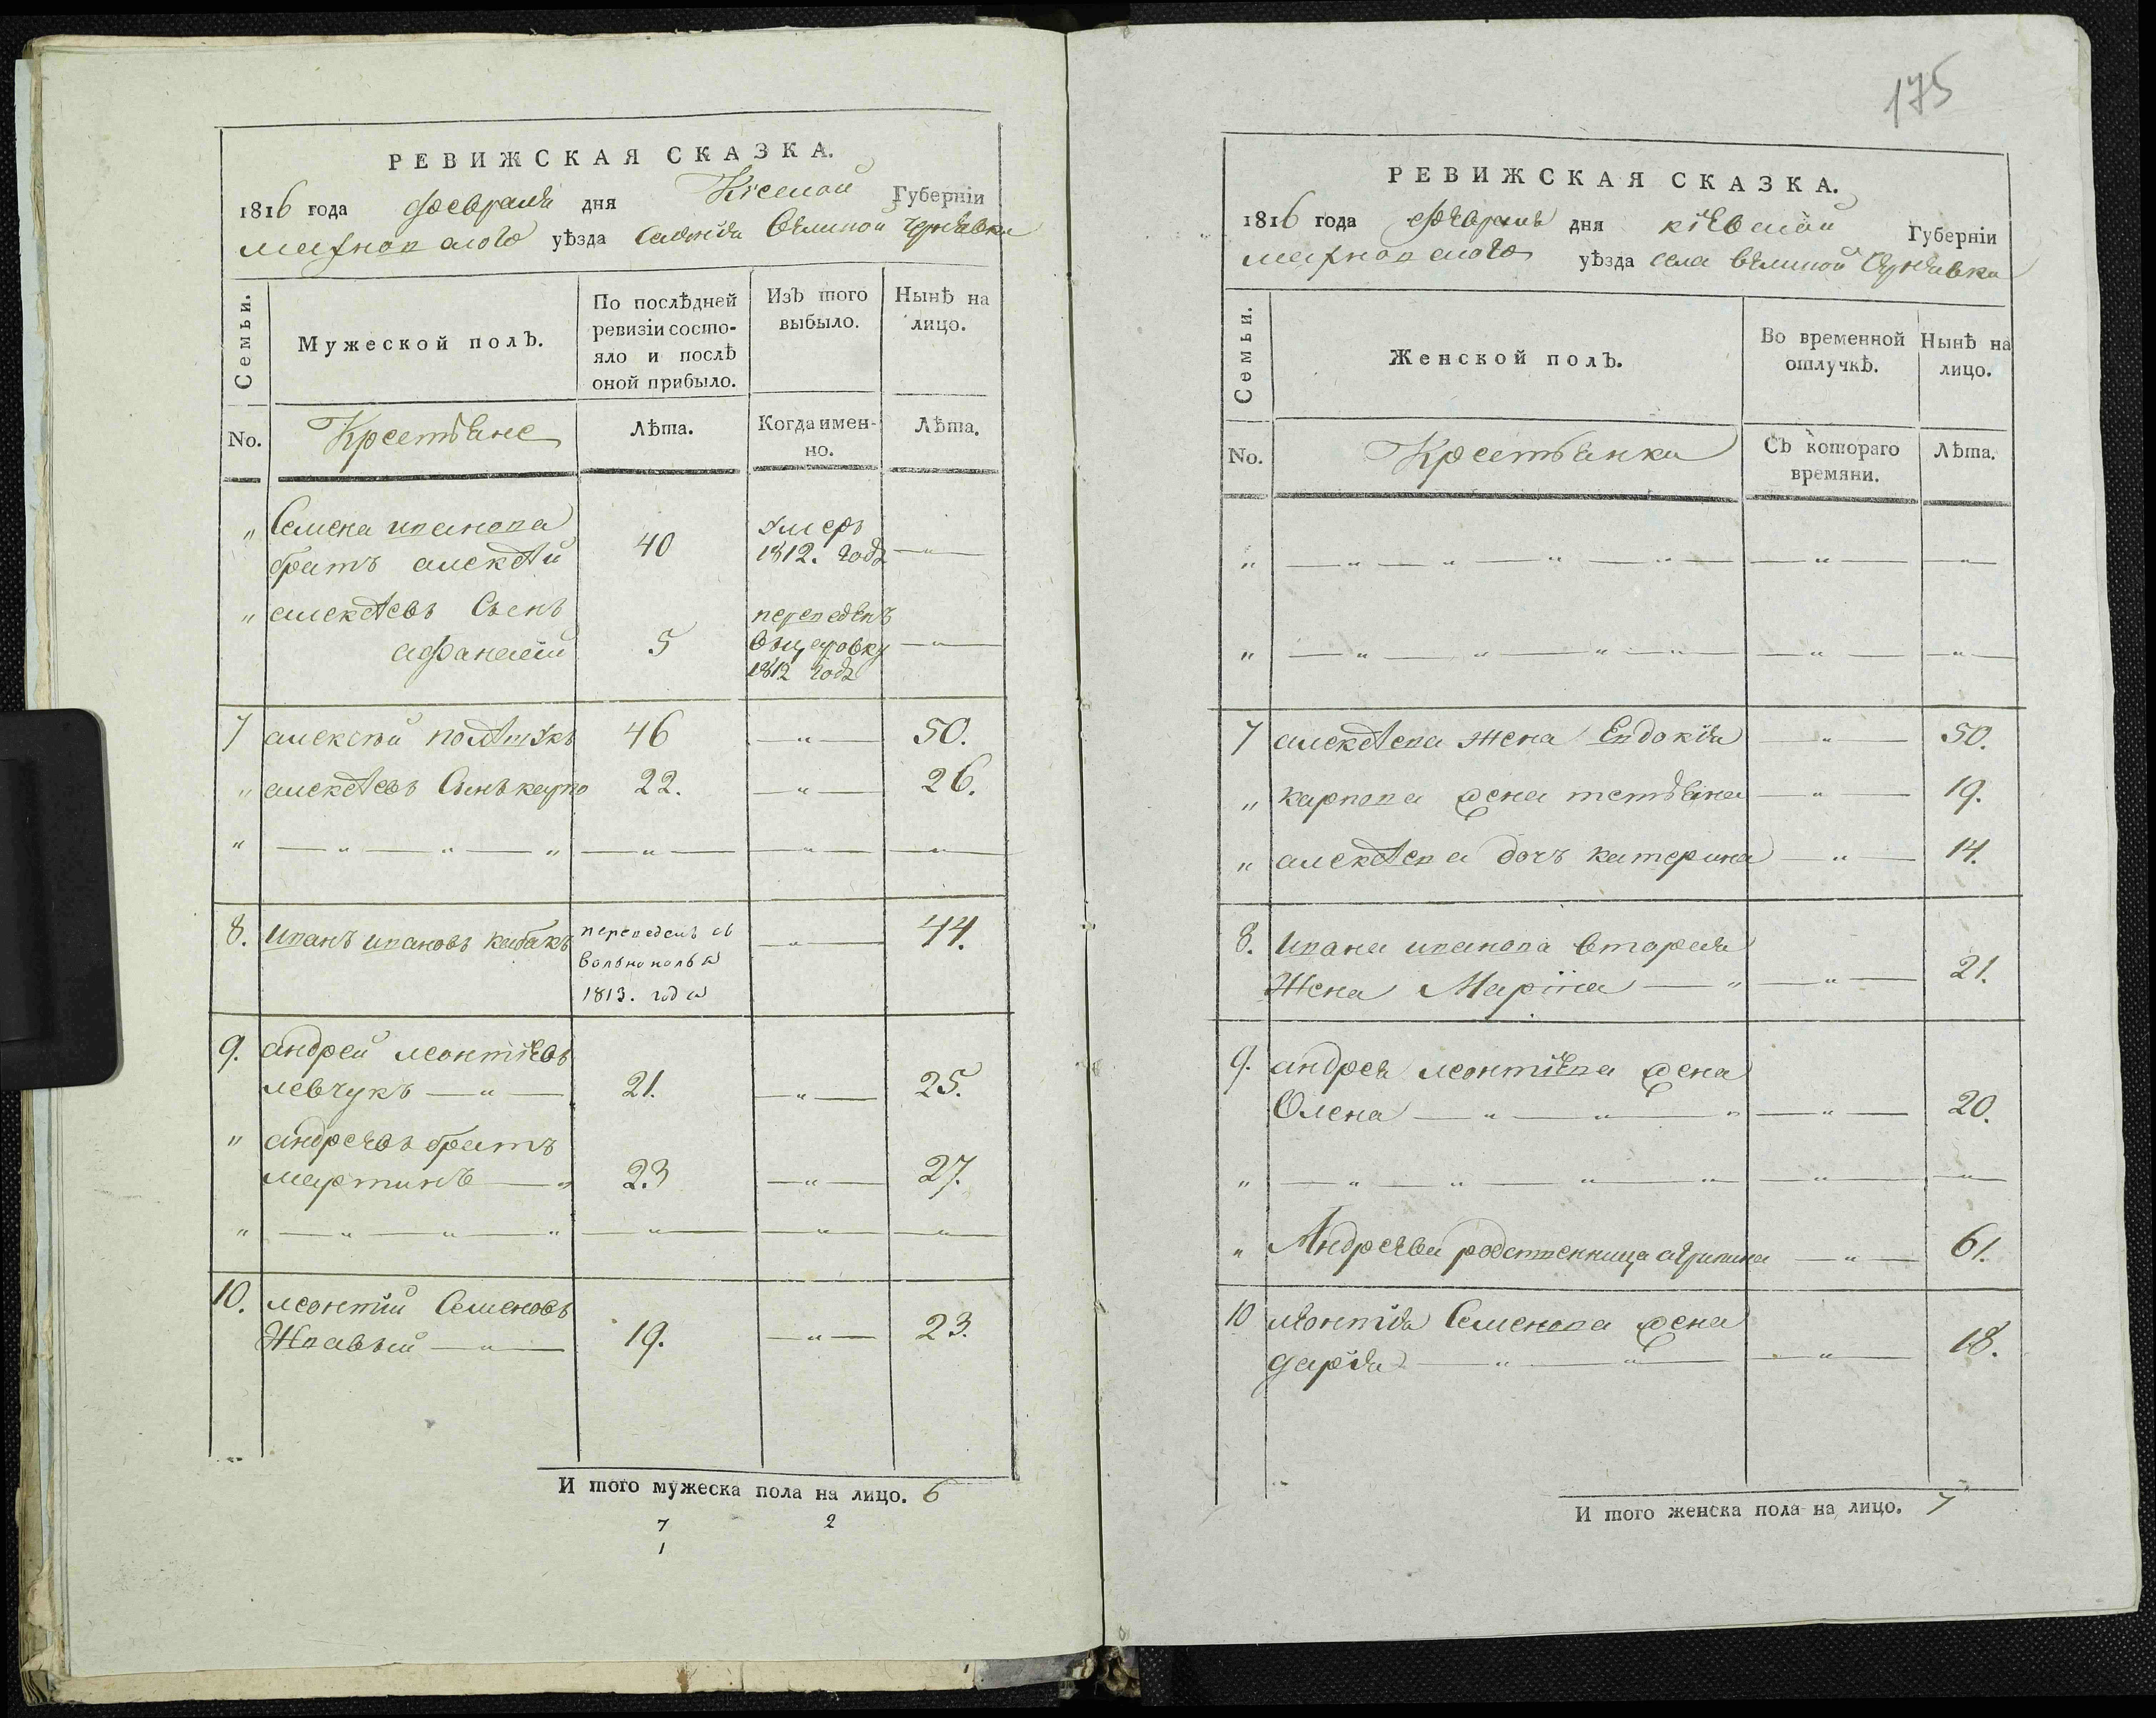 РЕВИЖСКАЯ СКАЗКА.
1816 года февраля дня Кіевской Губерніи
махновского уѣзда Селенія Великой Чернявки
Семьи.
Мужеской полЪ.
По послѣдней ревизіи состо-
яло и послѣ
оной прибыло.
ИзЪ того
выбыло.
НынѢ на
лицо.
No.
Крестьяне
ЛѢта.
Когда имен-
но.
ЛѢта.
„ Семена иванова
братъ алексѣй 40 умеръ 1812. года — „ —
„ алексѣевъ Сынъ
афанасій 5 переведенъ
1812 года — „ —
7 алексѣй 46 — „ — 50.
„ алексѣевъ Сынъ карпо 22. — „ — 26.
„ — „ — „ — „ — „ — — „ — — „ —
8. Иванъ ивановъ кабакъ переведенъ съ
1813. года — „ — 44.
9. андрей леонтіевъ
левчукъ — „ — 21. — „ — 25.
„ андреевъ братъ
мартинъ — „ 23 — „ — 27.
„ — „ — „ — „ — „ — — „ — — „ —
10. леонтій Семеновъ
Жвавый — „ — 19. — „ — 23.
И того мужеска пола на лицо. 6
7 2
1
175
РЕВИЖСКАЯ СКАЗКА.
1816 года февраля дня кіевской Губерніи
махновского уѣзда села великой Чернявки
Семьи.
Женской полЪ.
Во временной
отлучкѢ.
НынѢ на
лицо.
No.
Крестьянки
СЪ котораго
времяни.
ЛѢта.
„ — „ — „ — „ — „ — — „ — — „ —
„ — „ — „ — „ — „ — — „ — — „ —
7 алексѣева жена Евдокія — „ — 50.
„ карпова жена тетьяна — „ — 19.
„ алексѣева дочъ катерина — „ — 14.
8. Ивана иванова вторая
Жена Маріна — „ — „ — 21.
9. андрея леонтіева жена
Олена — „ — „ — „ — „ — 20.
„ — „ — „ — „ — „ — — „ — — „ —
„ Андреева родственница агрипина — „ — 61.
10 леонтія Семенова жена
дарія — „ — „ — — „ — 18.
И того женска пола на лицо. 7